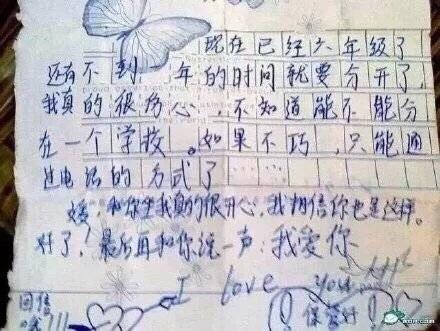 现在已经六年级了
还有不到一年的时间就要分开了，
我真的很疼心，不知道能不能分
在一个学校。如果不巧，只能通
过电话的方式了……
媛，和你坐我真的很开心，我相信你也是这样。
好了！最后再和你说一声：我爱你
I love you
回信
哦!!!
保管好